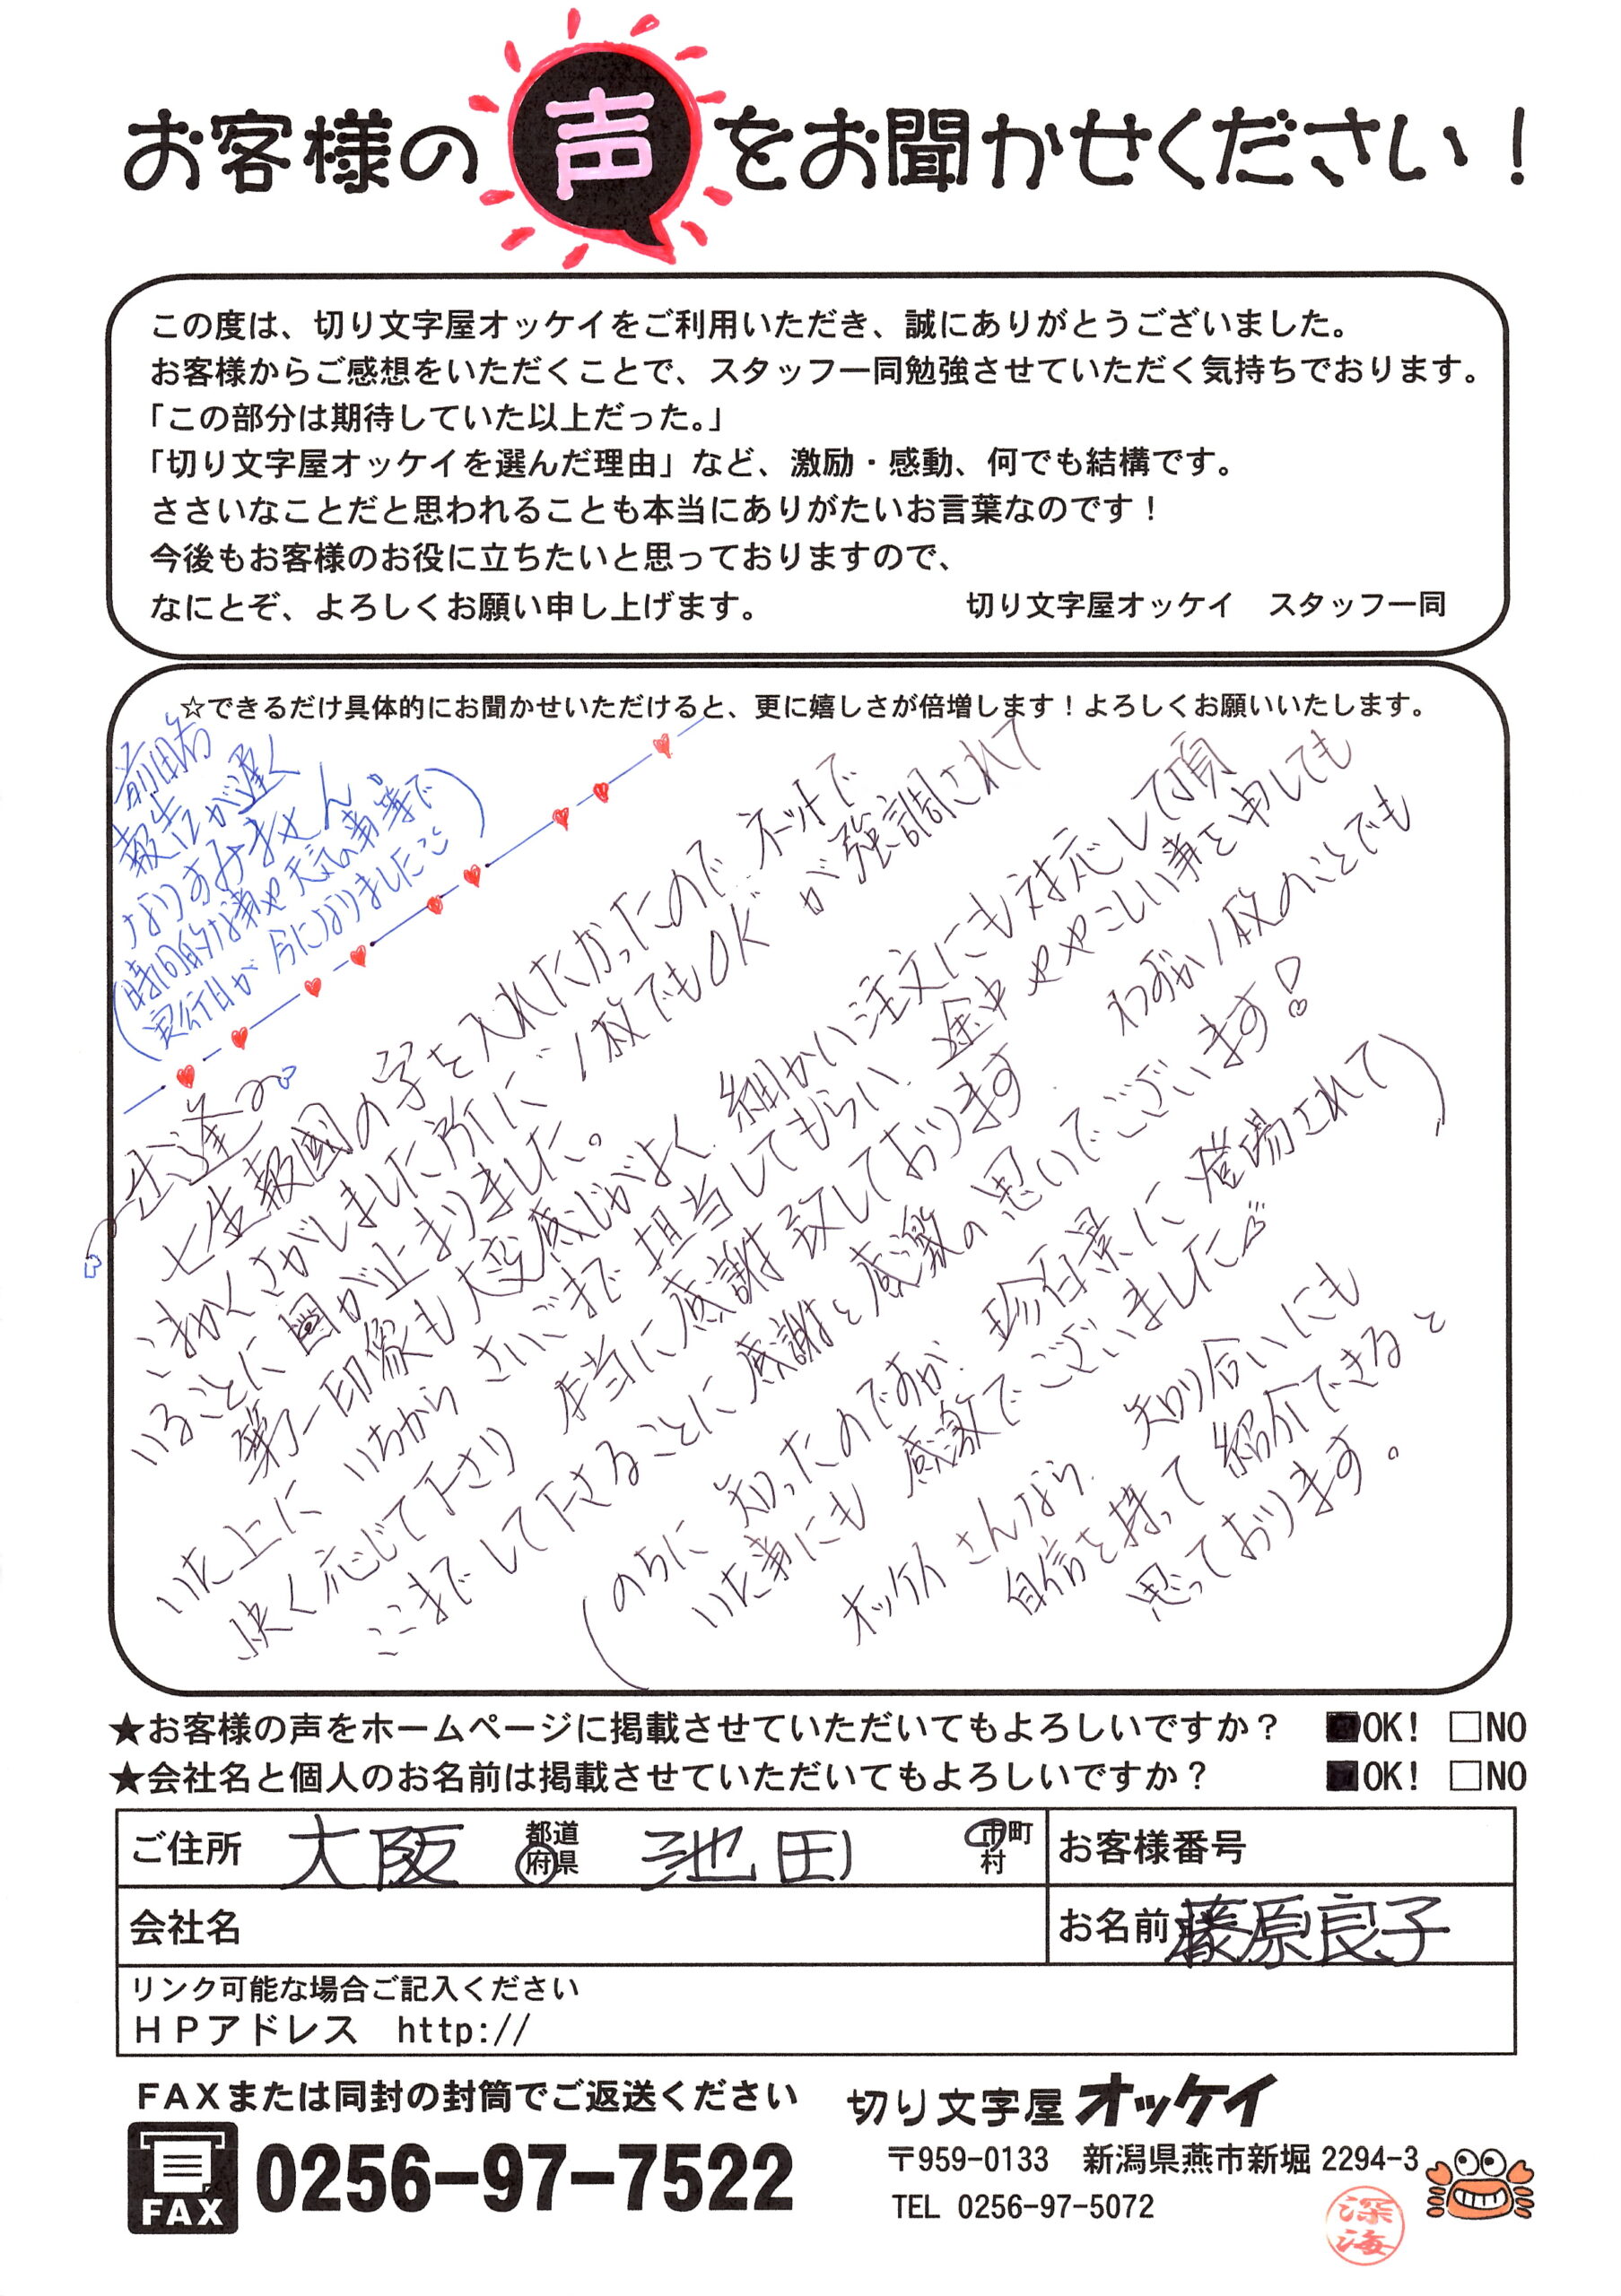 お客様の声をお聞かせください!
この度は、切り文字屋オッケイをご利用いただき、誠にありがとうございました。
お客様からご感想をいただくことで、スタッフ一同勉強させていただく気持ちでおります。
「この部分は期待していた以上だった。」
「切り文字屋オッケイを選んだ理由」など、激励・感動、何でも結構です。
ささいなことだと思われることも本当にありがたいお言葉なのです!
今後もお客様のお役に立ちたいと思っておりますので、
なにとぞ、よろしくお願い申し上げます。 切り文字屋オッケイ スタッフ一同
☆できるだけ具体的にお聞かせいただけると、更に嬉しさが倍増します!よろしくお願いいたします。
報告が遅く
なりすみません。
(時間的な事や天気の事等で
実行日が今になりました
七生報國の字を入れたかったので ネットで
こまかくさがしました所に 1枚でもOK が強調されて
いることに 目が止まりました。
第一印象も大変感じがよく 細かい注文にも対応して頂
いた上に いちから さいごまで 担当してもらい 途中 ややこしい事を申しても
快く応じて下さり 本当に感謝致しております わずか1枚のことでも
ここまでして下さることに 感謝と感激の思いでございます!
(のちに 知ったのですが 珍百景に 登場されて
いた事にも 感激でございました)
オッケイさんなら 知り合いにも
自信を持って 紹介できると
思っております。
★お客様の声をホームページに掲載させていただいてもよろしいですか? ■OK! □NO
★会社名と個人のお名前は掲載させていただいてもよろしいですか? ■OK! □NO
ご住所 大阪 都道府県 池田 市町村 お客様番号
会社名 お名前 藤原良子
リンク可能な場合ご記入ください
HPアドレス http://
FAXまたは同封の封筒でご返送ください
FAX 0256-97-7522
切り文字屋オッケイ
〒959-0133 新潟県燕市新堀 2294-3
TEL 0256-97-5072
深海